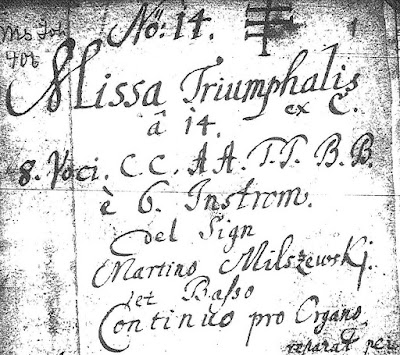 Ms Joh
406
No: 14.
1
Missa Triumphalis
ex C.
â 14.
8. Voci. C. C. A A. T. T. B. B.
è 6. Instrom.
del Sign
Martino Milszewskj.
et Basso
Continuo pro Organo
reparat